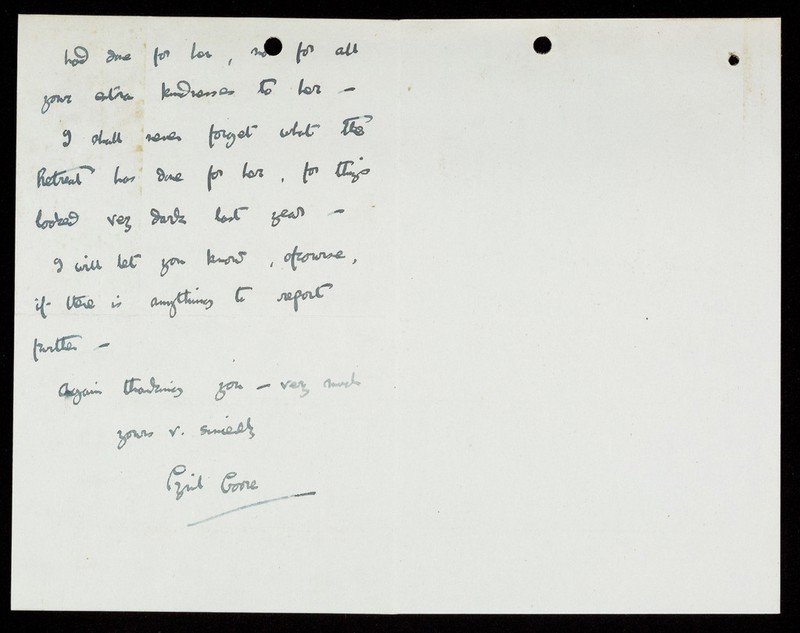 had done for her, for all
your extra kindnesses to her –
I shall never forget what the
Retreat has done for her, for things
looked very dark last year –
I will let you know, of course,
if there is anything to report
further –
Again thanking you – very much
yours v. sincerely